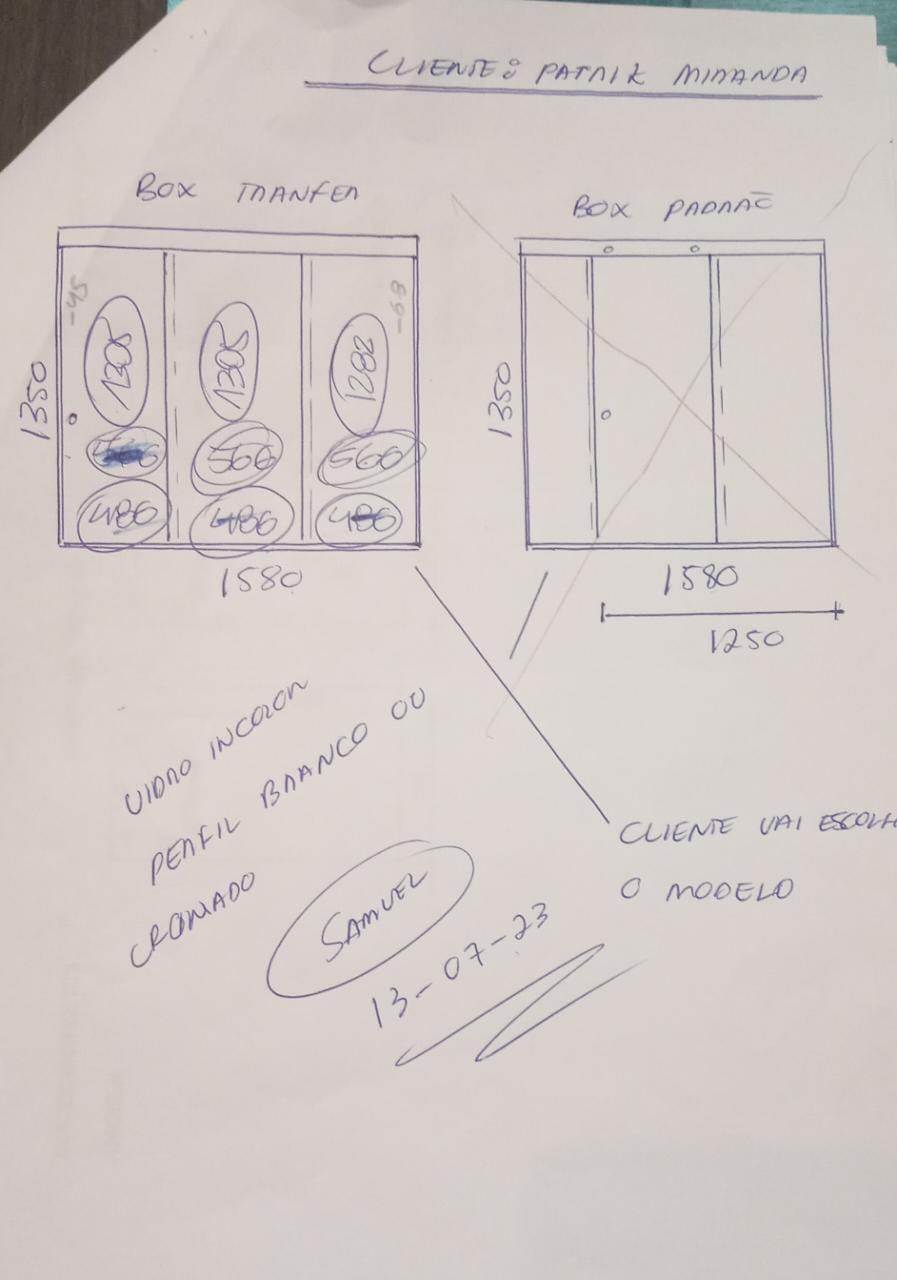 CLIENTE: PATRIK MIRANDA
BOX TRANFER
BOX PADRÃO
-45
-68
1305
1305
1282
1350
1350
566
566
486
486
486
1580
1580
1250
VIDRO INCOLOR
PERFIL BRANCO OU
CROMADO
CLIENTE VAI ESCOLH
O MODELO
SAMUEL
13-07-23